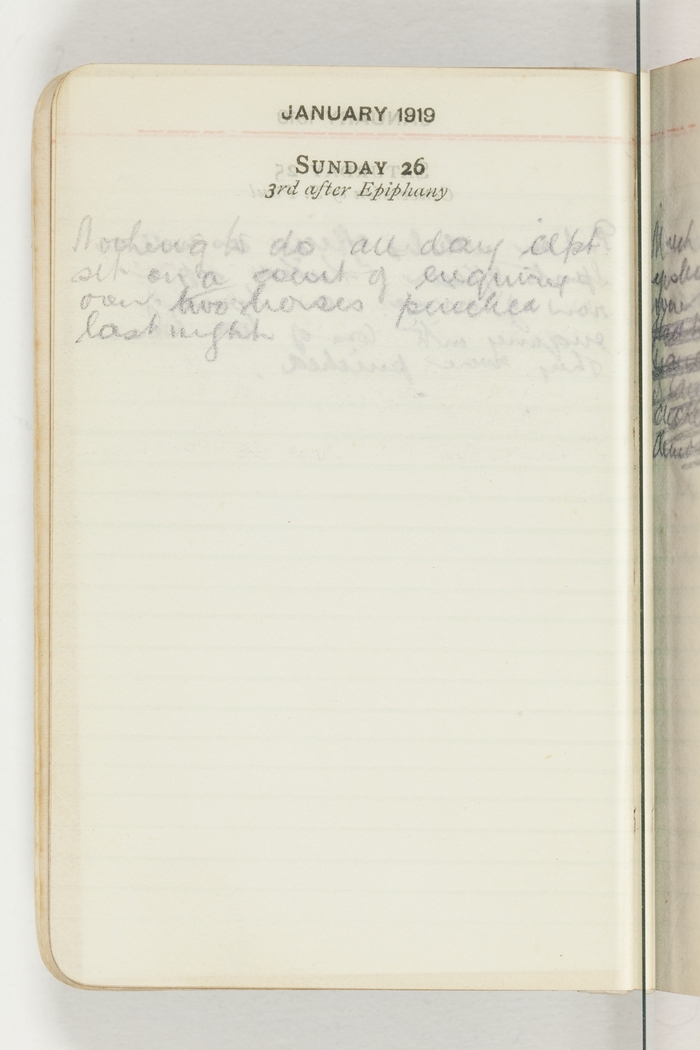 JANUARY 1919
SUNDAY 26
3rd after Epiphany
Nothing to do all day cept
set on a court of enquiry
over two horses pinched
last night